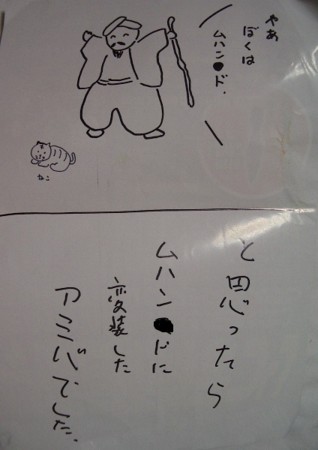 やあ
ぼくは
ムハン●ド.
ねこ
と思ったら
ムハン●ドに
変装した
アミバでした.